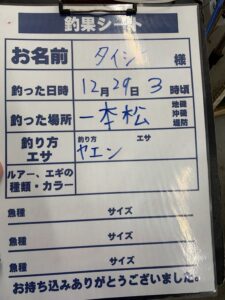 釣果シート
お名前 タイシ 様
釣った日時 12月29日 3時頃
釣った場所 一本松 地磯 沖磯 堤防
釣り方 エサ 釣り方 ヤエン エサ
ルアー、エギの種類・カラー
魚種 サイズ
魚種 サイズ
魚種 サイズ
お持ち込みありがとうございました。